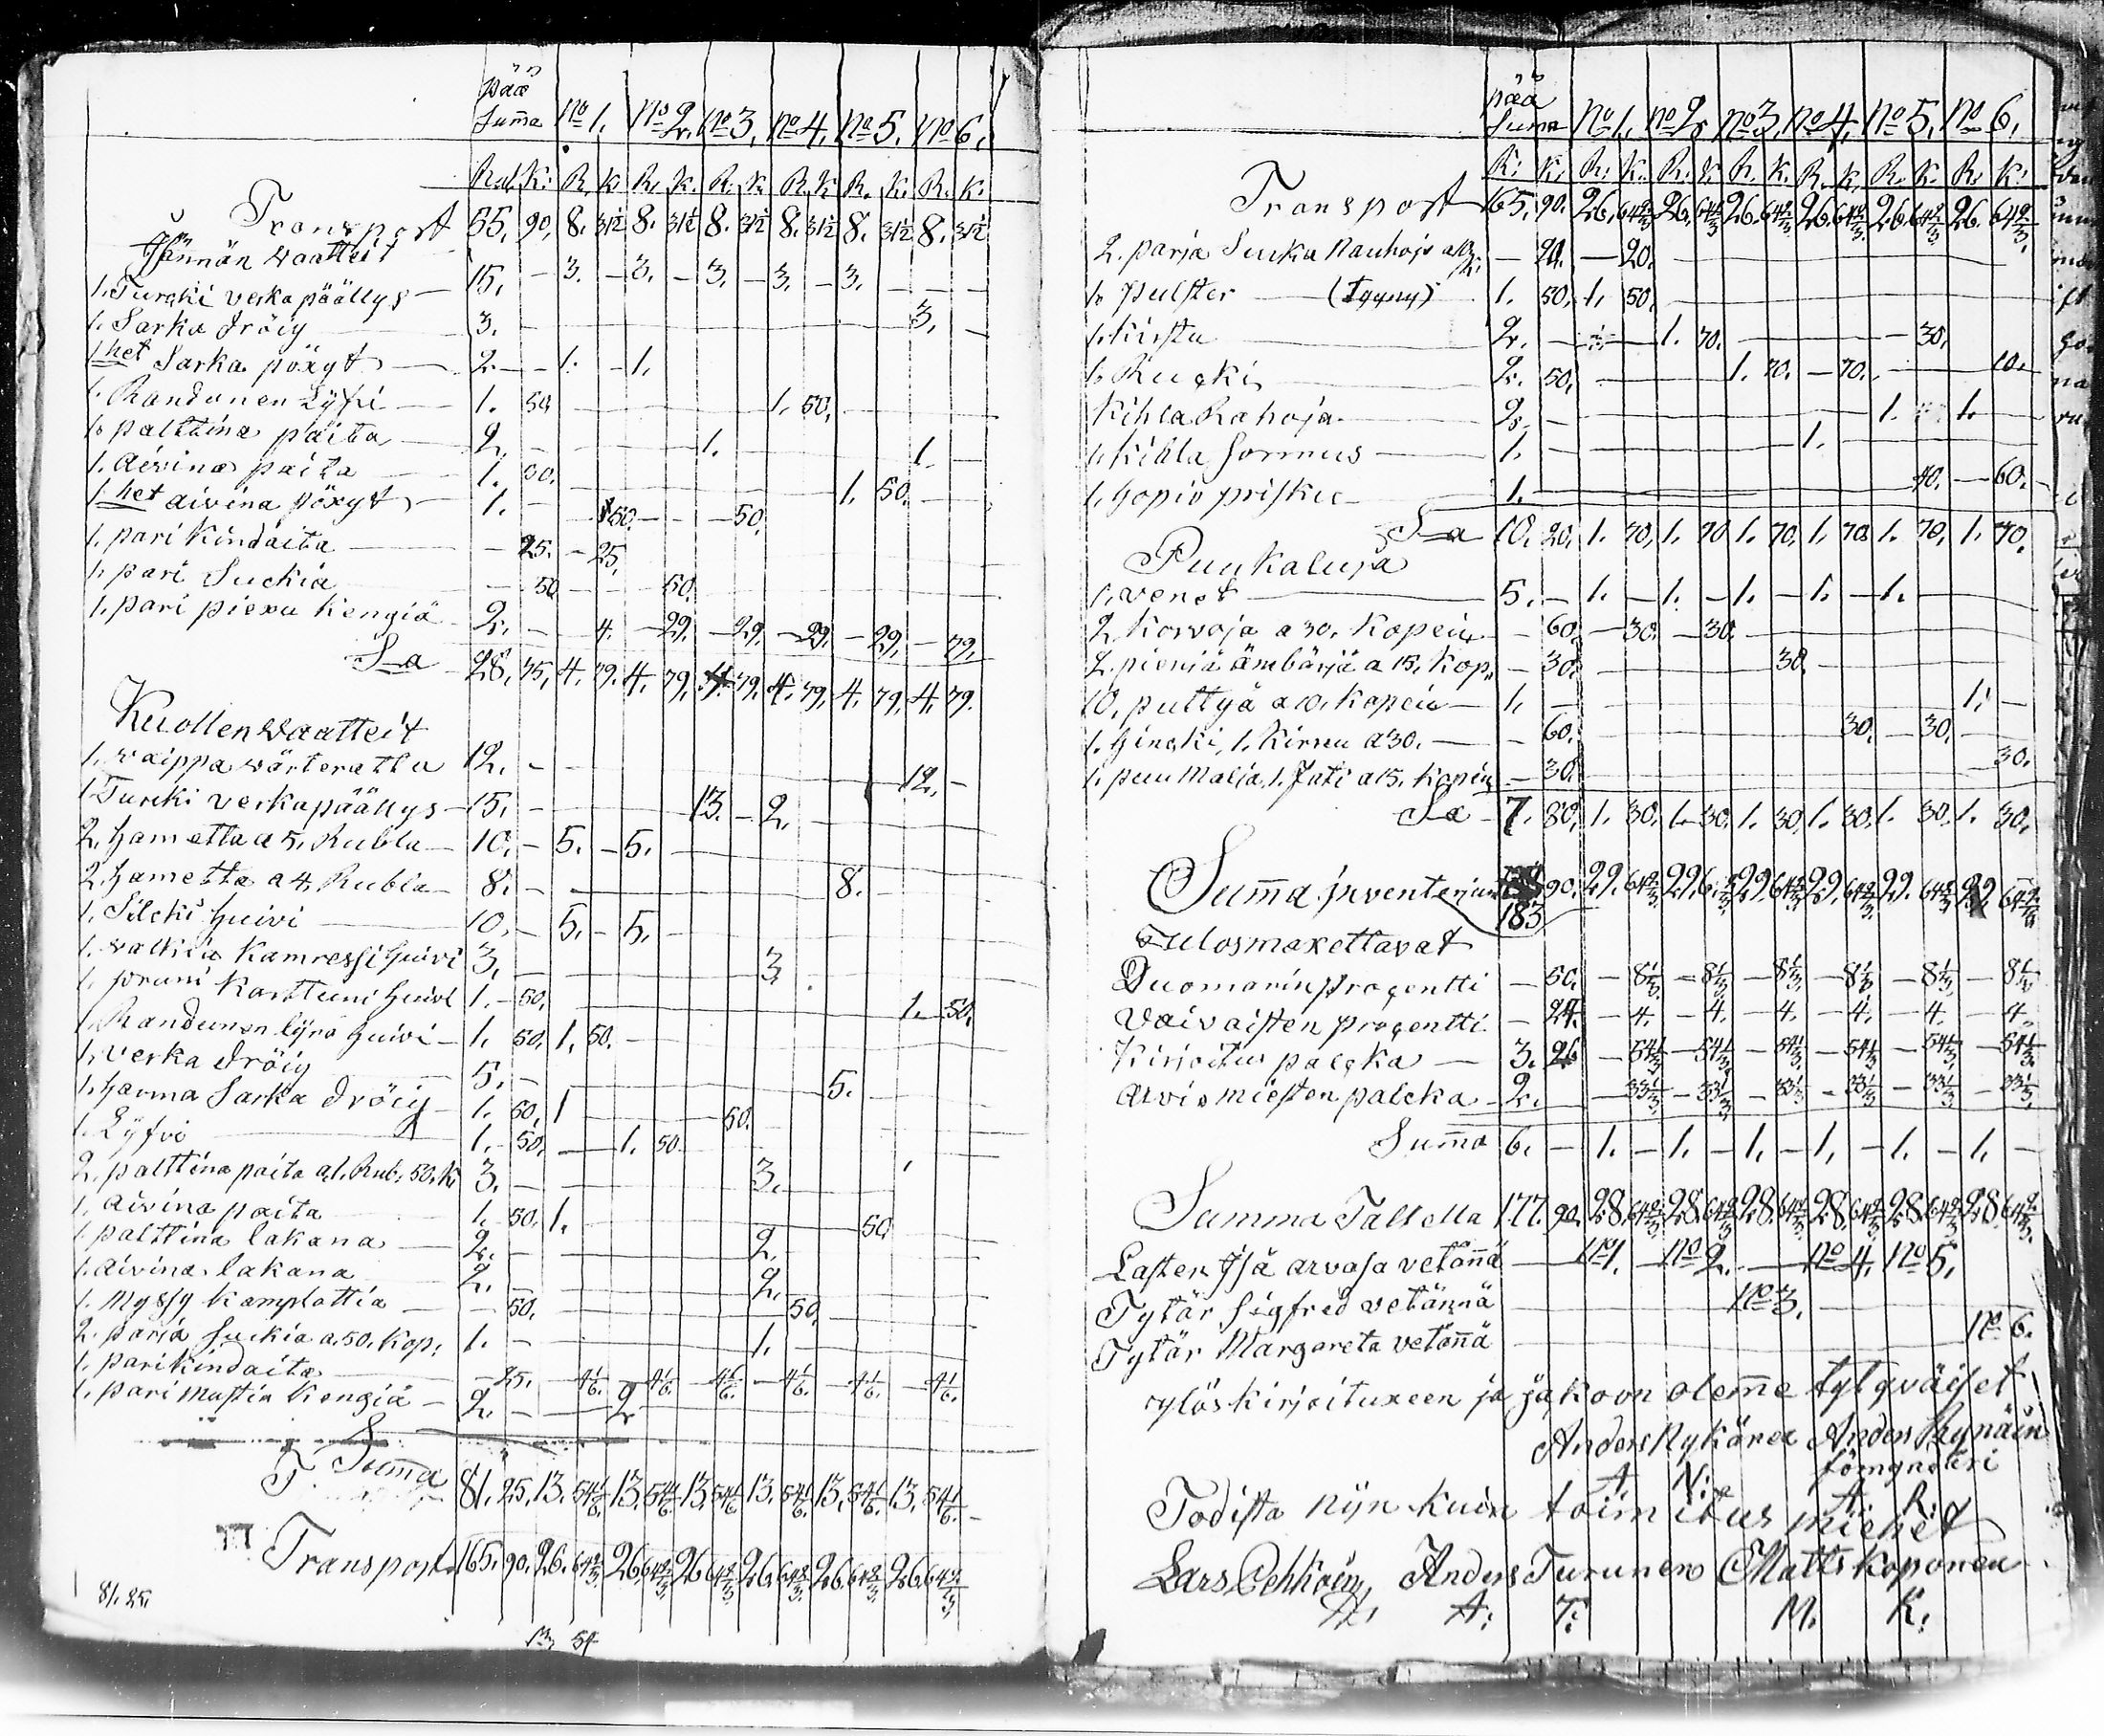 pää
Suma No 1. No 2. No 3. No 4. No 5. No 6.
Rub. K: R. K R. K. R. K. R. K R. K. R. K.
Transport 55. 90. 8. 31/2 8. 31/2 8. 31/2 8. 31/2 8. 31/2 8. 31/2
Isännän Waatteit
1. Turcki verkapäällys — 15. — 3. — 3. — 3. — 3. — 3. —
1. Sarka Dröiy — 3. — 3. —
1 het Sarka pöxyt — 2. — 1. — 1.
1. Randunen Lyfvi — 1. 50. — 1. 50.
1. palttina paita — 2. — 1. — 1. —
1. Aivina paita — 1. 50. — 1. 50. —
1 het aivina pöxyt — 1. — 50. — 50.
1. pari Kindaita — 25. — 25.
1. pari Suckia — 50 — 50.
1. pari piexu Kengiä — 2. — 4. — 29. — 29. — 29. — 29. — 79.
S-a 28. 75. 4. 79. 4. 79. 4. 79. 4. 79. 4. 79. 4. 79.
Kuollen Waatteit
1. waippa wärteratlu 12. — 12. —
1 Turcki verkapäällys — 15. — 13. — 2.
2. Hametta a 5. Rubla — 10. — 5. — 5.
2. Hametta a 4. Rubla — 8. — 8.
1. Silcki Huivi — 10. — 5. — 5.
1. walkia Kamressi Huivi 3. — 3.
1. pruni Karttuni Huivi 1. — 50. — 1. 50.
1. Randunen lijna Huivi — 1. 50. 1. 50. —
1. Verka Dröiy — 5. — 5.
1. Harma Sarka Dröiy — 1. 50. 1 — 50.
1. Lyfvi — 1. 50. — 1. 50
2. palttina paita a 1. Rub: 50. K. 3. — 3.
1. Aivina paita 1. 50. 1. — 50
1. palttina lakana — 2. — 2.
1. Aivina lakana — 2. — 2.
1. Myssy Kamplottia — 50. — 50.
2. paria Suckia a. 50. Kop: 1. — 1.
1. pari Kindaita — 25. — 41/6. 41/6. — 41/6. — 41/6. — 41/6. — 41/6.
1. pari Mustia Kengiä — 2. — 2
Suma 81. 25. 13. 541/6. 13. 541/6. 13. 541/6. 13. 541/6. 13. 541/6. 13. 541/6.
Transport 165. 90. 26. 642/3. 26. 642/3. 26. 642/3. 26. 642/3. 26. 642/3. 26. 642/3.
81. 25.
13 54
pää
Suma No 1. No 2. No 3. No 4. No 5. No 6.
R: K: R: K. R. K R. K. R. K. R. K. R: K:
Transport 165. 90. 26. 642/3 26. 642/3 26. 642/3 26. 642/3 26. 642/3 26. 642/3.
2. parja Sucka Nauhoja — 20. — 20.
1. Pulster — 1. 50. 1. 50.
1. Kirstu — 2. — 1. 70. — 30.
1. Rucki — 2. 50. — 1. 70. — 70. — 10.
Kihla Rahoja — 2. — 1. 1.
1. Kihla Sormus — 1. — 1.
1. Hopio prisku — 1. — 40. — 60.
S-a 10. 20. 1. 70. 1. 70 1. 70. 1. 70. 1. 70. 1. 70.
Puukaluja
1. venet — 5. — 1. — 1. — 1. — 1. — 1.
2. Korvoja a 30. Kopeik — 60. — 30. — 30.
2. pieniä ämbärjä a 15. Kop. — 30. — 30.
10. puttyä a 10. Kopeik — 1. — 1. —
1. Hincki, 1. Kirnu a 30. — 60. — 30. — 30.
1. puu Malia, 1. Jati a 15. Kopeik — 30. — 30.
S-a 7. 80. 1. 30. 1. 30. 1. 30. 1. 30. 1. 30. 1. 30.
Suma Inventerjum 90. 29. 642/3. 29. 642/3. 29. 642/3. 29. 642/3. 29. 642/3. 29. 642/3
183
Ulosmaxettavat
Duomarin procentti — 50. — 81/3. — 81/3. — 81/3. — 81/3. — 81/3. — 81/3
Vaivaisten procentti — 24. — 4. — 4. — 4. — 4. — 4. — 4.
Kirjoitus palcka — 3. 26 — 541/3. — 541/3. — 541/3. — 541/3. — 541/3. — 541/3.
Arvio miesten palcka — 2. — 331/3. — 331/3. — 331/3. — 331/3. — 331/3. — 331/3.
Suma 6. — 1. — 1. — 1. — 1. — 1. — 1. —
Summa Tallella 177. 90. 28. 642/3. 28. 642/3. 28. 642/3. 28. 642/3. 28. 642/3. 28. 642/3.
Lasten Isä arvasa vetänä — No 1. — No 2. — No 4. No 5.
Tytär Sigfred vetännä — No 3.
Tytär Margareta vetänä — No 6.
ylöskirjoituxeen ja jakoon oleme tytyväiset
Anders Nykänen Anders Rynäin
A. N: förmyndäri
A: R:
Todista nijn kuin toimitus miehet
Lars Pehkoin, Anders Turunen Matts Koponen
A: T: M. K: